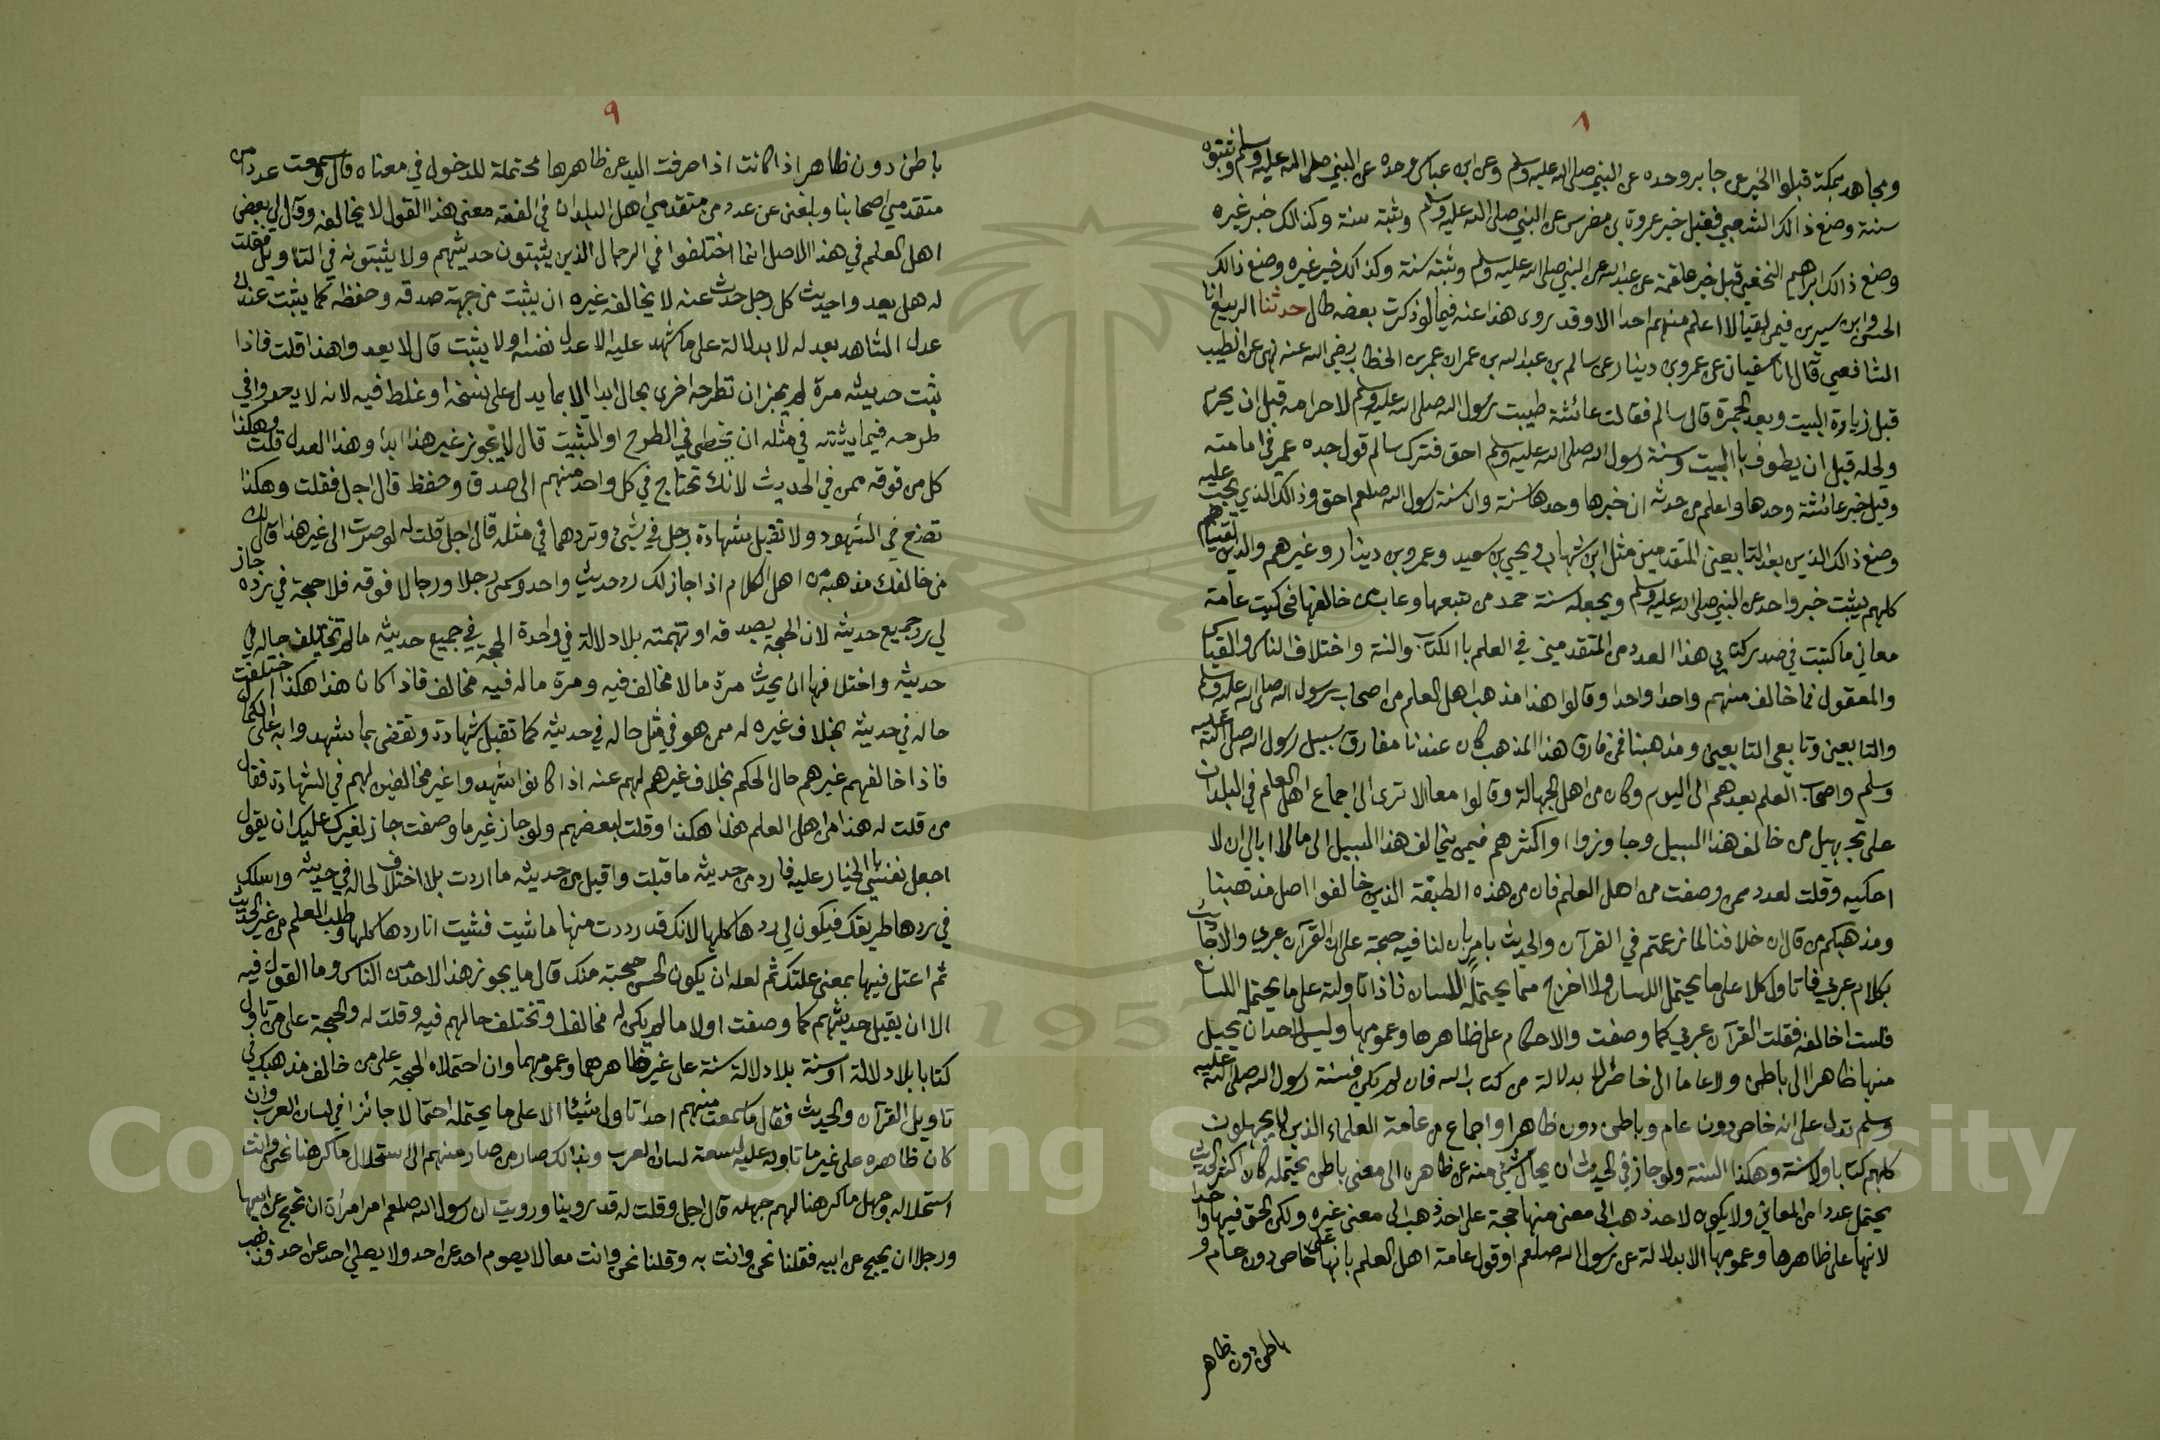 ٨
ومجاهد بمكة قبلوا الخبر عن جابر وحده عن النبي صلى الله عليه وسلم وعن ابن عباس وحده عن النبي صلى الله عليه وسلم وثبتوه
سنة وصنع ذالك الشعبي فقبل خبر عروة بن مضرس عن النبي صلى الله عليه وسلم وثبته سنة وكذالك خبر غيره
وصنع ذالك ابراهيم النخعي قبل خبر علقمة عن عبد الله عن النبي صلى الله عليه وسلم وثبته سنة وكذالك خبر غيره وصنع ذالك
الحسن وابن سيرين فيمن لقيا لا اعلم منهم احدا الا وقد روى هذا عنه فيما لو ذكرت بعضه طال حدثنا الربيع انا
الشافعي قال انا سفيان عن عمرو بن دينار عن سالم بن عبد الله بن عمر ان عمر بن الخطاب رضي الله عنه نهى عن الطيب
قبل زيارة البيت وبعد الجمرة قال سالم فقالت عائشة طيبت رسول الله صلى الله عليه وسلم لاحرامه قبل ان يحرم
ولحله قبل ان يطوف باالبيت وسنة رسول الله صلى الله عليه وسلم احق فترك سالم قول جده عمر في امامته
وقبل خبر عائشة وحدها واعلم من حدثه ان خبرها وحدها سنة وان سنة رسول الله صلعم احق وذالك الذي يجب عليه
وصنع ذالك الذين بعد التابعين المتقدمين مثل ابن شهاب ويحيى بن سعيد وعمرو بن دينار وغيرهم والذين لقيناهم
كلهم يثبت خبر واحد عن النبي صلى الله عليه وسلم ويجعله سنة حمد من تبعها وعاب من خالفها فحكيت عامة
معاني ما كتبت في صدر كتابي هذا العدد من المتقدمين في العلم باالكتاب والسنة واختلاف الناس والقياس
والمعقول فما خالف منهم واحد واحدا وقالوا هذا مذهب اهل العلم من اصحاب رسول الله صلى الله عليه وسلم
والتابعين وتابعي التابعين ومذهبنا فمن فارق هذا المذهب كان عندنا مفارق سبيل رسول الله صلى الله عليه
وسلم واصحاب العلم بعدهم الى اليوم وكان من اهل الجهالة وقالوا معا لا نرى الا اجماع اهل العلم في البلدان
على تجهيل من خالف هذا السبيل وجاوزوا او اكثرهم فيمن يخالف هذا السبيل الى ما لا ابالي ان لا
احكيه وقلت لعدد ممن وصفت من اهل العلم فان من هذه الطبقة الذين خالفوا اصل مذهبنا
ومذهبكم من قال ان خلافنا لما زعمتم في القرآن والحديث يامر بان لنا فيه حجة على ان القرآن عربي والاحاديث
بكلام عربي فاتاول كلا على ما يحتمل اللسان ولا اخرج مما يحتمله اللسان فاذا تاولته على ما يحتمله اللسان
فلست اخالفه فقلت القرآن عربي كما وصفت والاحكام على ظاهرها وعمومها وليس لاحد ان يحيل
منها ظاهرا الى باطن ولا عاما الى خاص الا بدلالة من كتاب الله فان لم يكن فسنة رسول الله صلى الله عليه
وسلم تدل على انه خاص دون عام وباطن دون ظاهر او اجماع من عامة العلماء الذين لا يجهلون
كلهم كتابا ولا سنة وهكذا السنة ولو جاز في الحديث ان يحال شئ منه عن ظاهره الى معنى باطن يحتمله كان اكثر الحديث
يحتمل عددا من المعاني ولا يكون لاحد ذهب الى معنى منها حجة على احد ذهب الى معنى غيره ولكن الحق فيها واحد
لانها على ظاهرها وعمومها الا بدلالة عن رسول الله صلعم او قول عامة اهل العلم بانها على خاص دون عام و
باطن دون ظاهر
٩
باطن دون ظاهر اذا كانت اذا صرفت اليه عن ظاهرها محتملة للدخول في معناه قال وسمعت عددا من
متقدمي اصحابنا وبلغني عن عدد من متقدمي اهل البلدان في الفقه معنى هذا القول لا يخالفه وقال لي بعض
اهل العلم في هذا الاصل انما اختلفوا في الرجال الذين يثبتون حديثهم ولا يثبتونه في التاويل فقلت
له هل يعدو احديث كل رجل حدث عنه لا يخالفه غيره ان يثبت من جهة صدقه وحفظه كما يثبت عندك
عدل الشاهد بعدله لا بدلالة على ما شهد عليه الا عدل نفسه او لا يثبت قال لا يعدو هذا قلت فاذا
ثبت حديثه مرة لم يجز ان نطرحه اخرى بحال ابدا الا بما يدل على نسخه او غلط فيه لانه لا يعدوا في
طرحه فيما يثبته في مثله ان يخطئ في الطرح او التثبيت قال لا يجوز غير هذا ابدا وهذا العدل قلت وهكذا
كل من فوقه ممن في الحديث لانك تحتاج في كل واحد منهم الى صدق وحفظ قال اجل فقلت وهكذا
تصنع في الشهود ولا تقبل شهادة رجل في شئ وتردهما في مثله قال اجل قلت له لو صرت الى غير هذا قال لك
من خالفك مذهبه من اهل الكلام اذا جاز لك رد حديث واحد وسمى رجلا ورجالا فوقه فلا حجة في رده جاز
لي رد جميع حديثه لان الحجة بصدقه او تهمته بلا دلالة في واحدة الحجة في جميع حديثه ما لم تختلف حاله في
حديثه واختلافها ان يحدث مرة ما لا مخالف فيه ومرة ما له فيه مخالف فاذا كان هذا هكذا اختلفت
حاله في حديثه بخلاف غيره له ممن هو في مثل حاله في حديثه كما تقبل شهادة وتقضى بما شهدوا به على الكمال
فاذا خالفهم غيرهم حال الحكم بخلاف غيرهم لهم عنه اذا كانوا شهدوا غير مخالفين لهم في الشهادة فقال
من قلت له هذا من اهل العلم هذا هكذا وقلت لبعضهم ولو جاز غير ما وصفت جاز لغيرك عليك ان يقول
اجعل نفسي باالخيار عليه فارد من حديثه ما قبلت واقبل من حديثه ما رددت بلا اختلاف لحاله في حديثه واسلك
في ردها طريقك فيكون لي ردها كلها لانك قد رددت منها ما شيت فشيت انا ردها كلها وطلب العلم من غير الحديث
ثم اعتل فيها بمعنى علتك ثم لعله ان يكون الحن بحجته منك قال ما يجوز هذا لاحد من الناس وما القول فيه
الا ان يقبل حديثهم كما وصفت اولا ما لم يكن له مخالفا وتختلف حالهم فيه وقلت له والحجة على من تاول
كتابا بلا دلالة او سنة بلا دلالة سنة على غير ظاهرهما وعمومهما وان احتملاه الحجة على من خالف مذهبك في
تاويل القرآن والحديث فقال ما سمعت منهم احدا تاول شيئا الا على ما يحتمله احتمالا جائزا في لسان العرب وان
كان ظاهره على غير ما تاوله عليه لسعة لسان العرب وبذالك صار من صار منهم الى استحلال ما كرهنا نحن وانت
استحلاله وجهل ما كرهنا لهم جهله قال اجل وقلت له قد روينا ورويت ان رسول الله صلعم امر امرأة ان تحج عن ابيها
ورجلا ان يحج عن ابيه فقلنا نحن وانت به وقلنا نحن وانت معا لا يصوم احد عن احد ولا يصلي احد عن احد فذهب
1957
Copyright © King Saud University